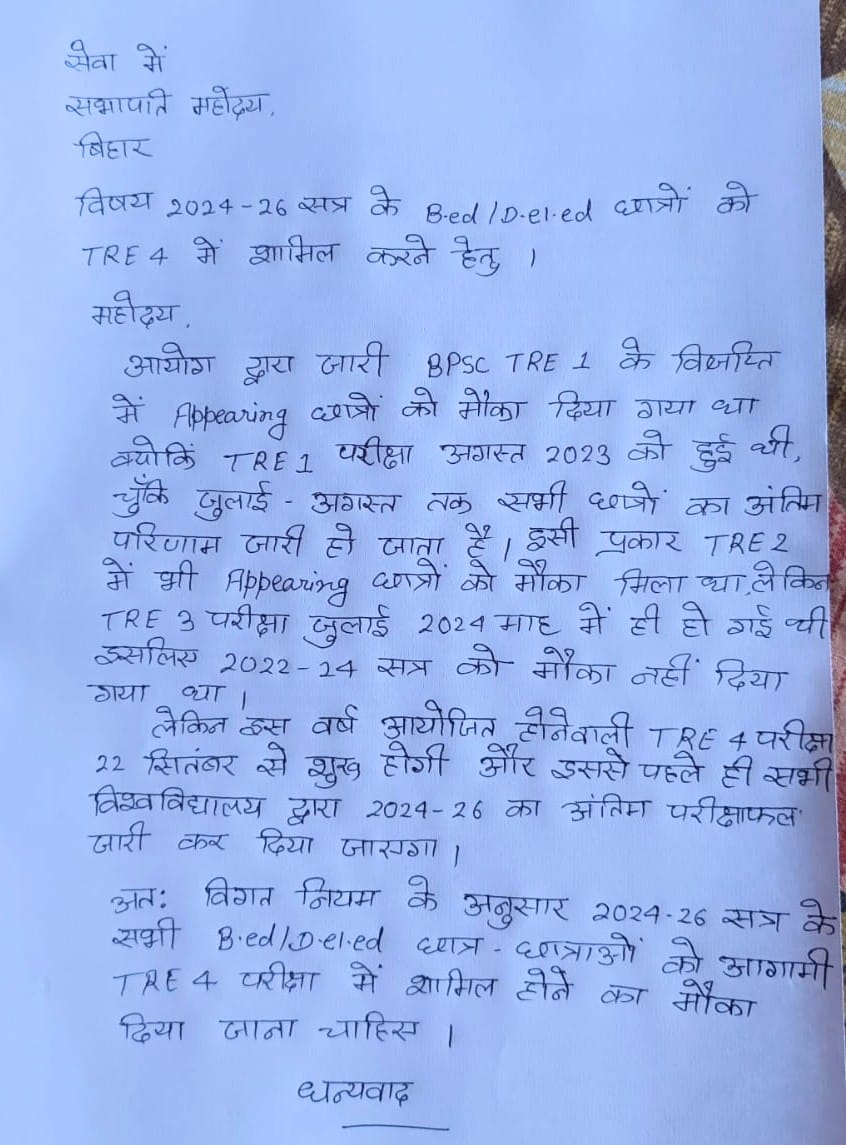 सेवा में
सभापति महोदय,
बिहार
विषय 2024-26 सत्र के B.ed/D.el.ed छात्रों को
TRE 4 में शामिल करने हेतु ।
महोदय,
आयोग द्वारा जारी BPSC TRE 1 के विज्ञप्ति
में Appearing छात्रों को मौका दिया गया था
क्योकिं TRE 1 परीक्षा अगस्त 2023 को हुई थी,
चूँकि जुलाई - अगस्त तक सभी छात्रों का अंतिम
परिणाम जारी हो जाता है। इसी प्रकार TRE 2
में भी Appearing छात्रों को मौका मिला था, लेकिन
TRE 3 परीक्षा जुलाई 2024 माह में ही हो गई थी
इसलिए 2022-24 सत्र को मौका नहीं दिया
गया था ।
लेकिन इस वर्ष आयोजित होनेवाली TRE 4 परीक्षा
22 सितंबर से शुरू होगी और इससे पहले ही सभी
विश्वविद्यालय द्वारा 2024-26 का अंतिम परीक्षाफल
जारी कर दिया जाएगा ।
अत: विगत नियम के अनुसार 2024-26 सत्र के
सभी B.ed/D.el.ed छात्र - छात्राओं को आगामी
TRE 4 परीक्षा में शामिल होने का मौका
दिया जाना चाहिए ।
धन्यवाद